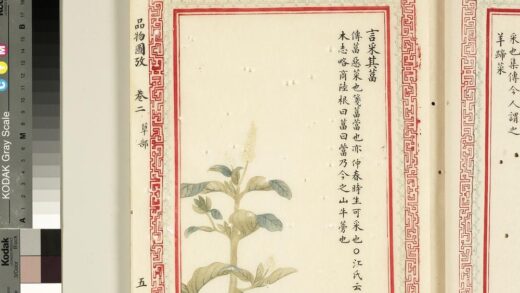 采也集傳今人謂之
羊蹄菜
言采其葍
傳葍惡菜也箋葍䔰也亦仲春時生可采也○江氏云
木志略商陸根曰葍曰䔰乃今之山牛蒡也
品物圖攷 卷二 草部 五
KODAK Gray Scale
C Y M
Kodak